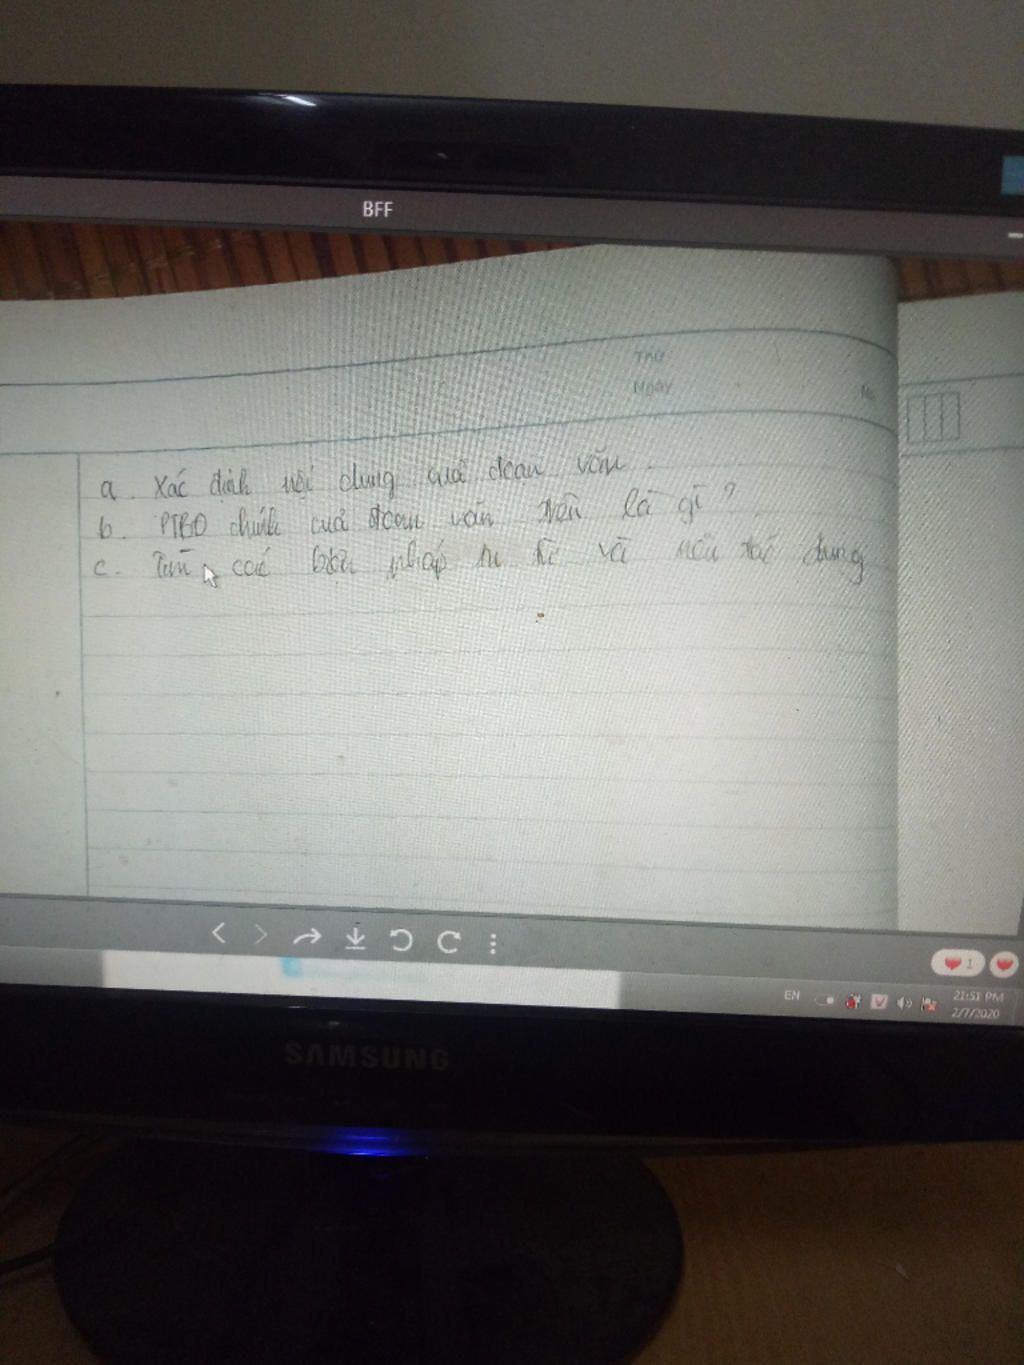 BFF
Thứ
Ngày
No
a. Xác định nội dung quả đoạn văn.
b. PTBĐ chính cuả đoạn văn trên là gì?
c. Tìm các biện pháp tu từ và nêu tác dụng
❤ 1 ❤
EN
21:51 PM
2/7/2020
SAMSUNG